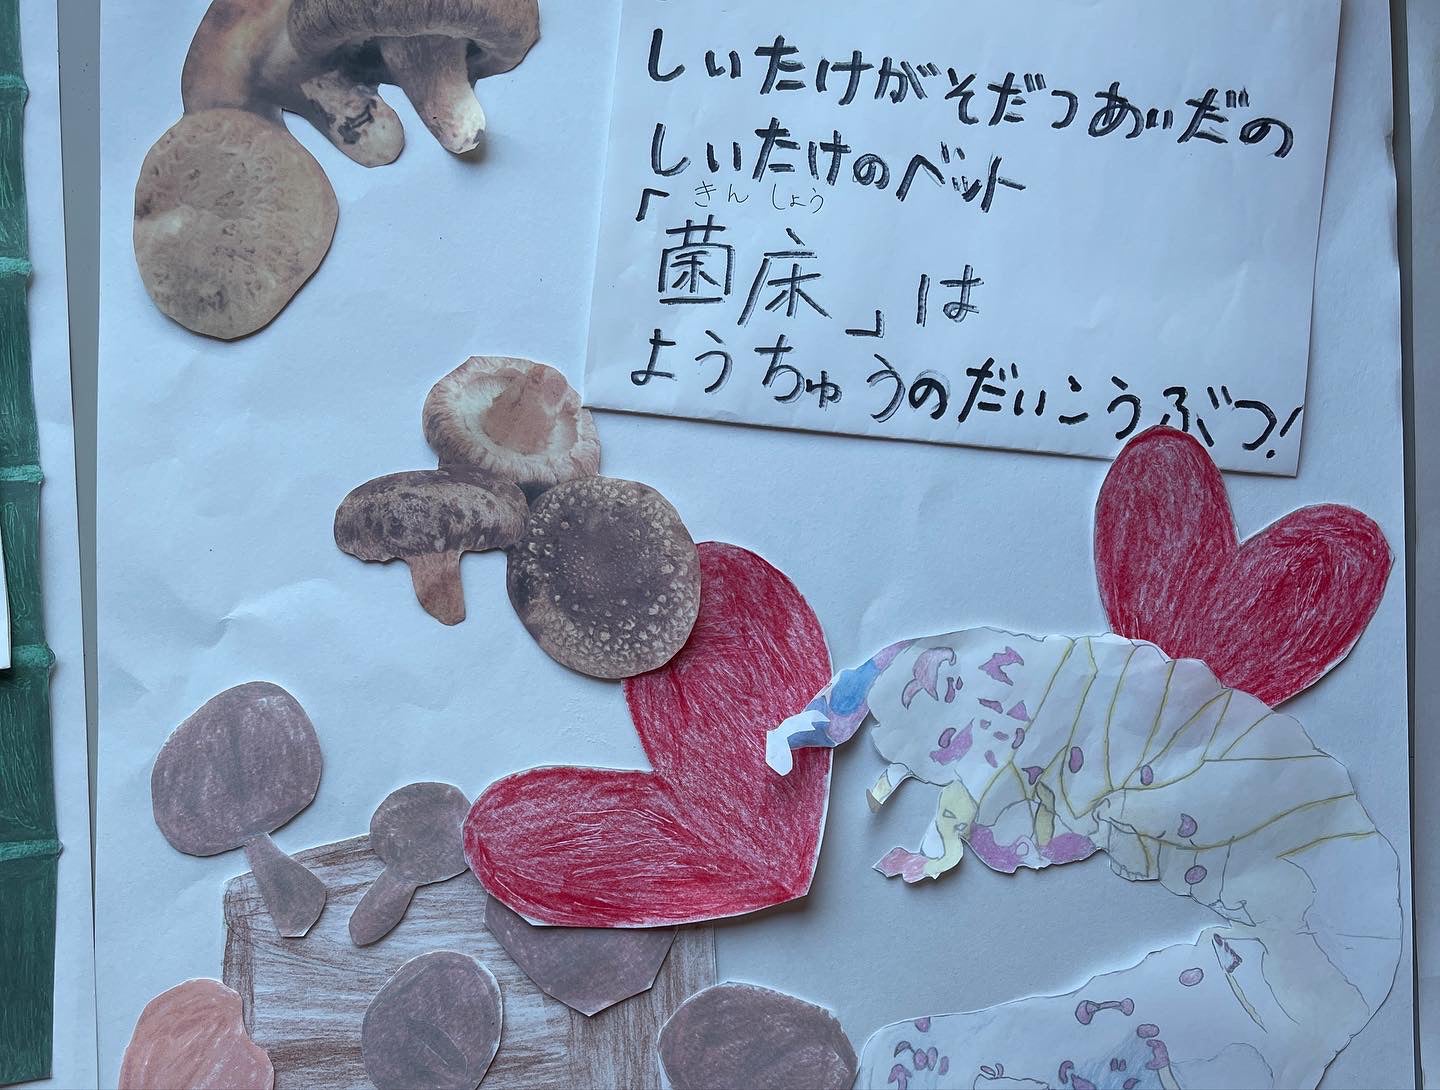 しいたけがそだつあいだの
しいたけのベット
きんしょう
「菌床」は
ようちゅうのだいこうぶつ!